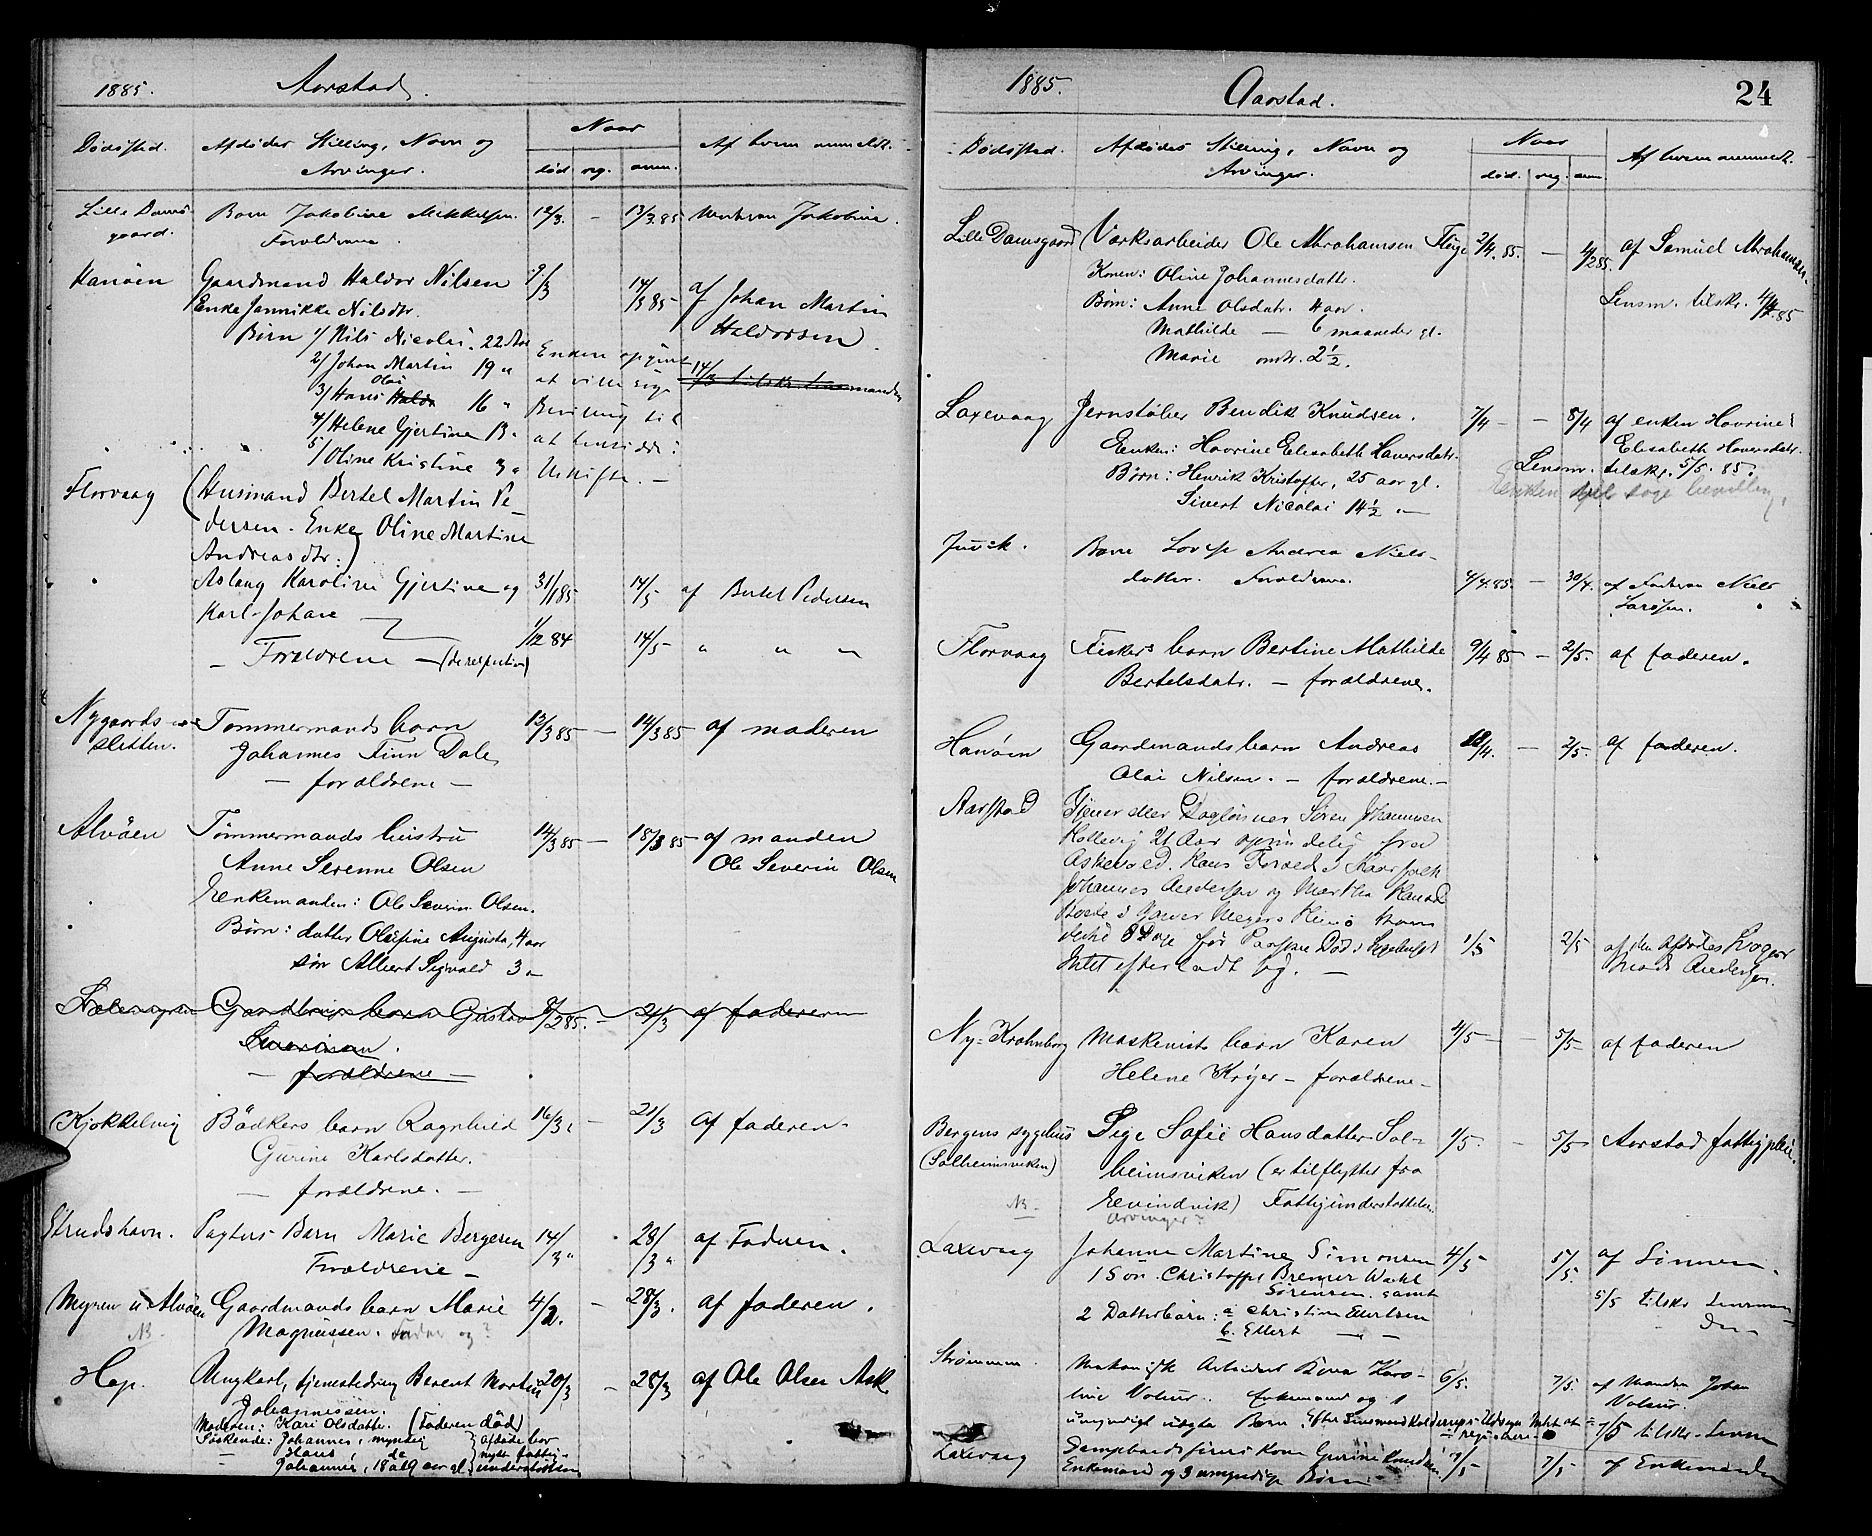 1885. Aarstad.
Dødssted. Afdødes Stilling, Navn og Arvinger. Naar Af hvem anmeldt.
død reg. anm.
Lille Dams- Barn Jakobine Mikkelsen. 12/3. – 13/3.85 Jakobine.
gaard. Forældrene.
Hanøen Gaardmand Haldor Nilsen 9/3 14/3 85 af Johan Martin
Enke Jannikke Nilsdtr. Haldorsen.
Børn 1/ Nils Nicolai. 22 Aar Enken opgiver
2/ Johan Martin 19 " at ville søge 14/3 tilskr. lensmanden
Olai
3/ Hans Haldr 16 " Bevilling til
4/ Helene Gjertine 13 " at hensidde i
5/ Oline Kristine 3 " Uskifte. –
Florvaag (Husmand Bertel Martin Pe-
dersen. Enke Oline Martine
Andreasdtr.)
Aslaug Karoline Gjertine og 31/1 85 14/5 af Bertel Pedersen
Karl Johan
1/12 84 14/5 " " "
– Forældrene –
Nygaards- Tømmermands barn 13/3 85 – 14/3 85 af moderen
sletten. Johannes Finn Dale
– forældrene –
Alvøen Tømmermands hustru 14/3 85 – 18/3 85 af manden
Anne Serenne Olsen Ole Severin Olsen
Enkemanden: Ole Severin Olsen.
Børn: datter Olufine Augusta, 4 aar
søn Albert Sigvald 3 "
barn Gustav 8/2 85. – 21/3 af faderen
– forældrene –
Kjøkkelvig Bødkers barn Ragnhild 16/3. – 21/3 af faderen.
Gurine Karlsdatter.
– forældrene. –
Strudshavn. Pagters Barn Marie Bergeren 14/3 " 28/3 " af Faderen.
Forældrene –
Myren u Alvøen Gaardmands barn Marie 4/2. – 28/3. af faderen.
NB. Magnussen. Fader og?
Hop. Ungkarl, tjenestedreng Berent Martin 20/3 – 28/3 af Ole Olsen Ask
Johannessen.
Moderen: Kari Olsdatter. (Faderen død)
Søskende: Johannes, myndig } afdøde har
– Hans de } nydt fattig-
Johannes, 18 a 19 aar gl. } understøttelse
1885. Aarstad. 24
Dødssted. Afdødes Stilling, Navn og Arvinger. Naar Af hvem anmeldt.
død. reg. anm.
Lille Damsgaard Værksarbeider Ole Abrahamsen 2/4. 85. – af Samuel Abrahamsen.
Konen: Oline Johannesdatt. Lensm. tilskr. 4/4 85
Børn: Anne Olsdatr. 4 aar.
Mathilde — 6 maaneder gl.
Marie omtr. 2½.
Laxevaag Jernstøber Bendik Knudsen. 7/4 – – 8/4 af enken Hovrine
Enken: Hovrine Elisabeth Haversdatr. Elisabeth Haversdatr.
Børn: Henrik Kristoffer, 25 aar gl. Lensm. tilskr. 5/5. 85.
Sivert Nicolai 14½ " Enken vil søge bevilling.
Juvik. Barn Andrea Niels-
datter. Forældrene. 4/4.85. – 30/4. af Faderen Niels
Larssen.
Florvaag Fiskers barn Bertine Mathilde 9/4 85 – 2/5. af faderen.
Bertelsdatr. – forældrene.
Hanøen Gaardmands barn Andreas 18/4. – 2/5. af faderen.
Olai Nilsen. – forældrene. –
Aarstad Tjener eller Dagleiner Søren Johannesen
21 Aar oprindelig fra
Askevold. Hans Forældre
Johannes Andersen og Martha
før Paaske Død i Sygehuset 1/5 2/5 af den afdødes Svoger
Intet efterladt sig. – Mads Andersen.
Ny-Krohnborg Maskinists barn Karen 4/5 – – 5/5 af faderen
Helene Krøyer – forældrene –
Bergens sygehus Pige Sofie Hansdatter Sol- 1/5 – 5/5 Aarstad fattigpleie.
(Solheimsviken) heimsviken (er tilflyttet fra
NB. Eevindvik) Fattigunderstøttelse.
Arvinger?
Laxevaag Johanne Martine Simonsen 4/5 5/5. af Sønnen.
1 Søn. Christoffer Bremer Wahl
Sørensen samt 5/5 tilskr Lensman-
2 Datterbørn: a Christian Evertsen den
b. Ellert — –
Strømmen. Mekanisk Arbeiders Kone Karo- 6/5. 7/5. af Manden Johan
line . Enkemand og 1
umyndigt Barn. 7/5 tilskr. Lensm
Laxevaag Kone Gurine 7/5 af Enkemanden
Enkemand og 3 umyndige Børn.